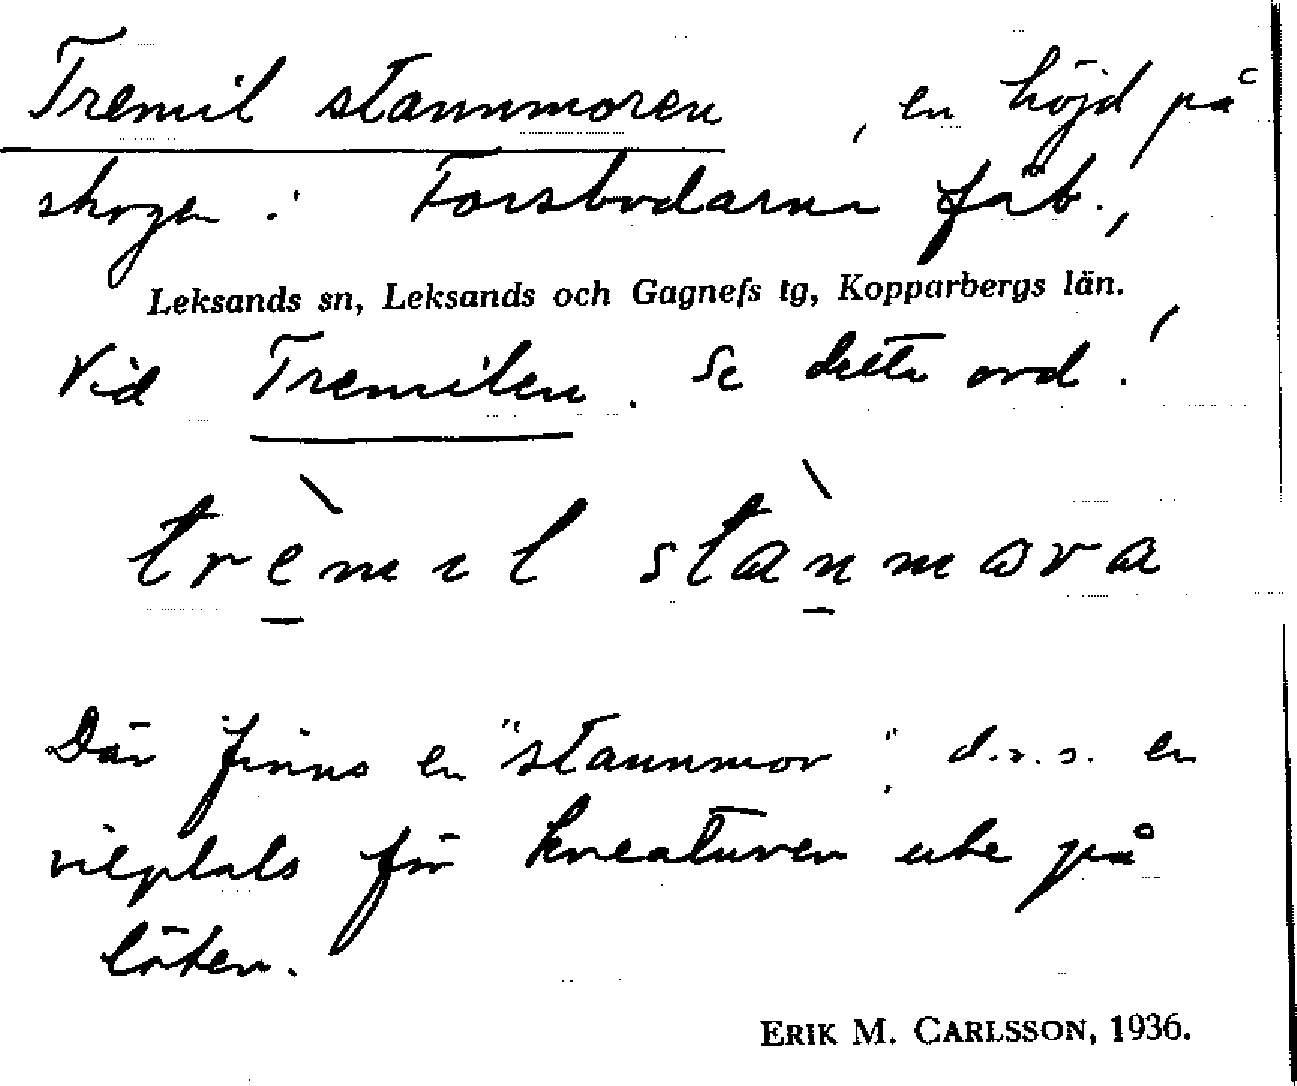 Tremil stannmoren, en höjd på
skogen i Forsbodarna fäb.,
Leksands sn, Leksands och Gagnefs tg, Kopparbergs län.
Vid Tremilen. Se detta ord!
trèmıl stànmɷra
Där finns en "stannmor", d.v.s. en
vilplats för kreaturen ute på
löten.
ERIK M. CARLSSON, 1936.